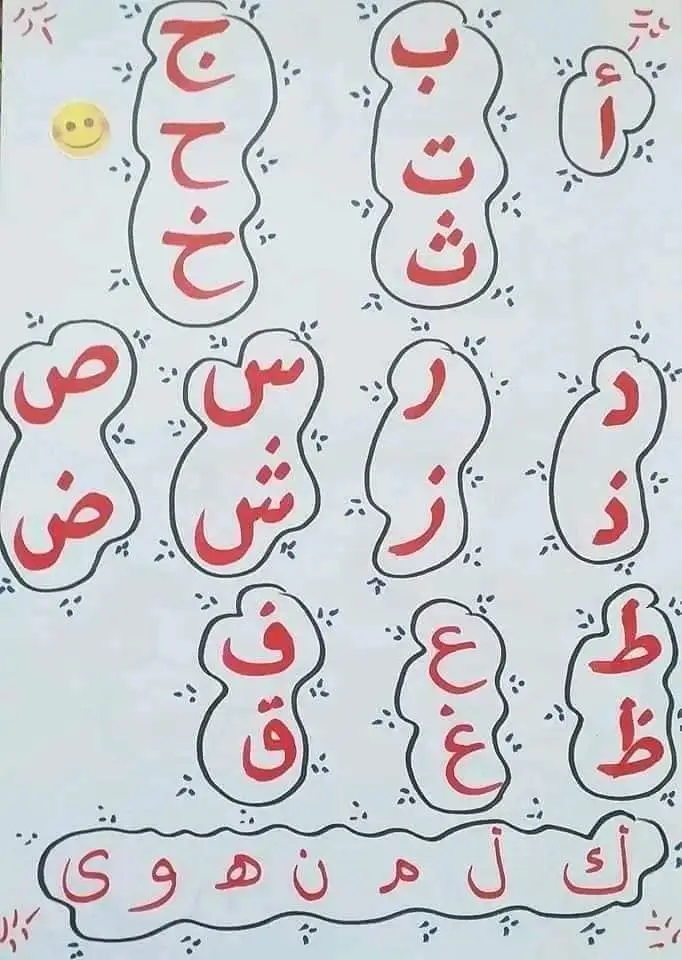 أ
ب
ت
ث
ج
ح
خ
د
ذ
ر
ز
س
ش
ص
ض
ط
ظ
ع
غ
ف
ق
ك ل م ن ه و ى